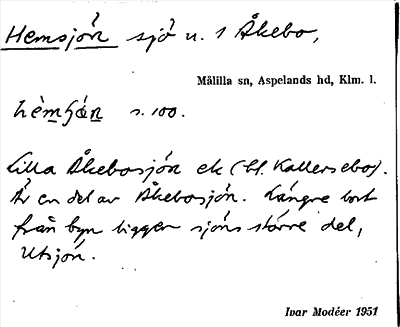 Hemsjön sjö n. 1 Åkebo,
Målilla sn, Aspelands hd, Klm. l.
s. 100.
Lilla Åkebosjön ek (bl. Kallersebo).
Är en del av Åkebosjön. Längre bort
från byn ligger sjöns större del,
Utsjön.
Ivar Modéer 1951